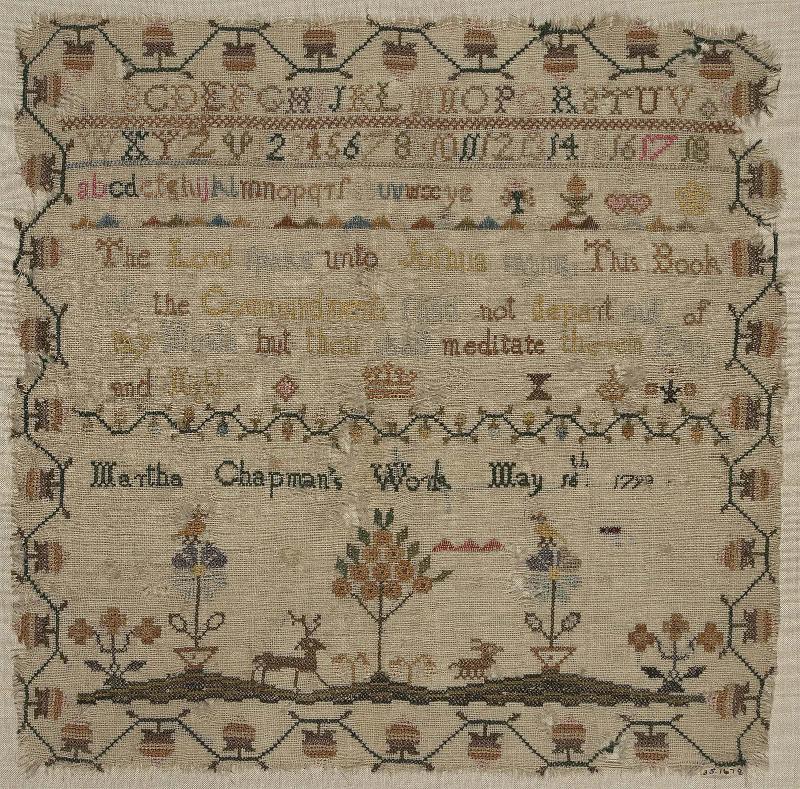 BCDEFGHIJKL MNOPQRSTUV
WXYZ & 2 3 4 5 6 7 8 10 11 12 13 14 16 17 18
abcdefghijklmnopqrſ uvwxyz
The Lord spake unto Joshua saying This Book
of the Commandment shall not depart out of
my Mouth but thou shalt meditate thereon Day
and Night
Martha Chapman's Work May 14th 1799
35.1678